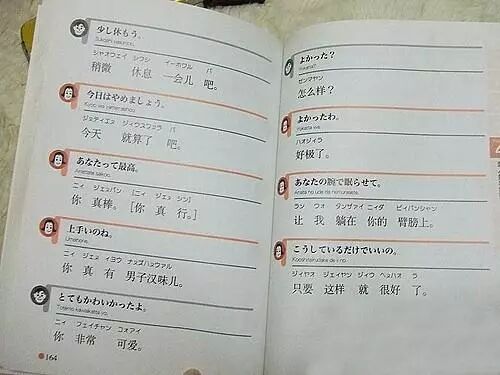 少し休もう。
Sukoshi yasumoo.
シャオウェイ シウシ イーホウル バ
稍微 休息 一会儿 吧。
今日はやめましょう。
Kyoo wa yamemashoo.
ジェティエヌ ジィウスゥヮラ バ
今天 就算了 吧。
あなたって最高。
Anatatte saikoo.
ニィ ジェヌバン [ニィ ジェヌ シン]
你 真棒。[你 真 行。]
上手いのね。
Umainone.
ニィ ジェヌ イヨウ ナヌズハヌウァル
你 真 有 男子汉味儿。
とてもかわいかったよ。
Totemo kawaikatta yo.
ニィ フェイチャン コォアイ
你 非常 可爱。
164
よかった？
Yokatta?
ゼンマヤン
怎么样？
よかったわ。
Yokatta wa.
ハオジィラ
好极了。
あなたの腕で眠らせて。
Anata no ude de nemurasete.
ラン ウオ タンザァイ ニィダ ビィバンシャン
让 我 躺在 你的 臂膀上。
こうしているだけでいいの。
Kooshiteirudake de ii no.
ジィヤオ ジェイヤン ジィウ ヘヌハオ ラ
只要 这样 就 很好 了。